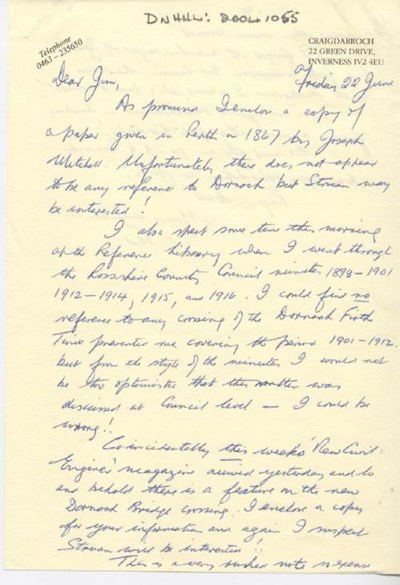 DNHHL: 2004 1055
Telephone
0463-235650
CRAIGDARROCH
22 GREEN DRIVE,
INVERNESS IV2 4EU
Friday 22 June
Dear Jim,
As promised I enclose a copy of
a paper given in Perth in 1867 by Joseph
Mitchell. Unfortunately there does not appear
to be any reference to Dornoch but Struan may
be interested!
I also spent some time this morning
at the Reference Library when I went through
the Ross-shire County Council minutes 1898-1901
1912-1914, 1915, and 1916. I could find no
reference to any crossing of the Dornoch Firth
Time prevented me covering the period 1901-1912.
but from the style of the minutes I would not
be too optimistic that this matter was
discussed at Council level - I could be
wrong!!
Co-incidentally this weeks 'New Civil
Engineer' magazine arrived yesterday and lo
and behold there is a feature on the new
Dornoch Bridge crossing. I enclose a copy
for your information and again I suspect
Struan will be interested!!
This is a very rushed note